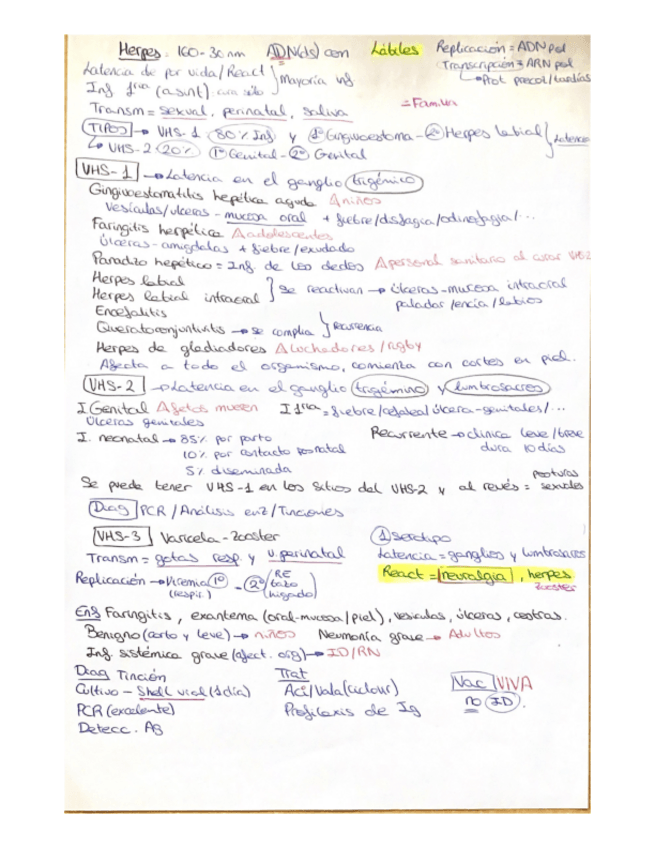 Herpes. 160-30nm ADN(ds) con Lábiles Replicación = ADN pol
Transcripción = ARN pol
Prot precoz/tardías
Latencia de por vida/React } Mayoría inf
Inf 1ria (asint)
Transm = sexual, perinatal, saliva = Fam.
TIPOS → VHS-1 80% Inf y 1º Gingivoestoma - 2º Herpes labial } Latencia
↳ VHS-2 20% 1º Genital - 2º Genital
VHS-1 → Latencia en el ganglio trigémico
Gingivoestomatitis hepética aguda Δ niños
Vesículas/úlceras - mucosa oral + fiebre/disfagia/odinofagia/...
Faringitis herpética Δ adolescentes
Úlceras - amígdalas + fiebre/exudado
Panadizo hepético = Inf. de los dedos Δ personal sanitario al curar VHS2
Herpes labial
Herpes labial intraoral } Se reactivan → úlceras-mucosa intraoral
paladar/encía/labios
Encefalitis
Queratoconjuntivitis → se complia } Recurrencia
Herpes de gladiadores Δ luchadores/rugby
Afecta a todo el organismo, comienza con cortes en piel.
VHS-2 → Latencia en el ganglio trigémino y lumbrosacreo
I Genital Δ fetos mueren I 1ria = fiebre/cefalea/úlcera-genitales/...
Úlceras genitales
I. neonatal → 85% por parto Recurrente → clínica leve/breve
10% por contacto posnatal dura 10 días
5% diseminada
Se puede tener VHS-1 en los sitios del VHS-2 y al revés = posturas sexuales
Diag PCR/Análisis enz/Tinciones
VHS-3 Varicela-Zooster 1 serotipo
Transm = gotas resp. y v. perinatal Latencia = ganglios y lumbrosacros
Replicación → Viremia 1º (respir.) - 2º (RE bazo hígado) React = neuralgia, herpes zooster
Enf Faringitis, exantema (oral-mucosa/piel), vesículas, úlceras, costras.
Benigno (corto y leve) → niños Neumonía grave → Adultos
Inf. sistémica grave (afect. org) → ID/RN
Diag Tinción Trat
Cultivo - Shell vial (1 día) Aci/Vala(ciclovir) Vac VIVA
PCR (excelente) Profilaxis de Ig no ID.
Detecc. AG